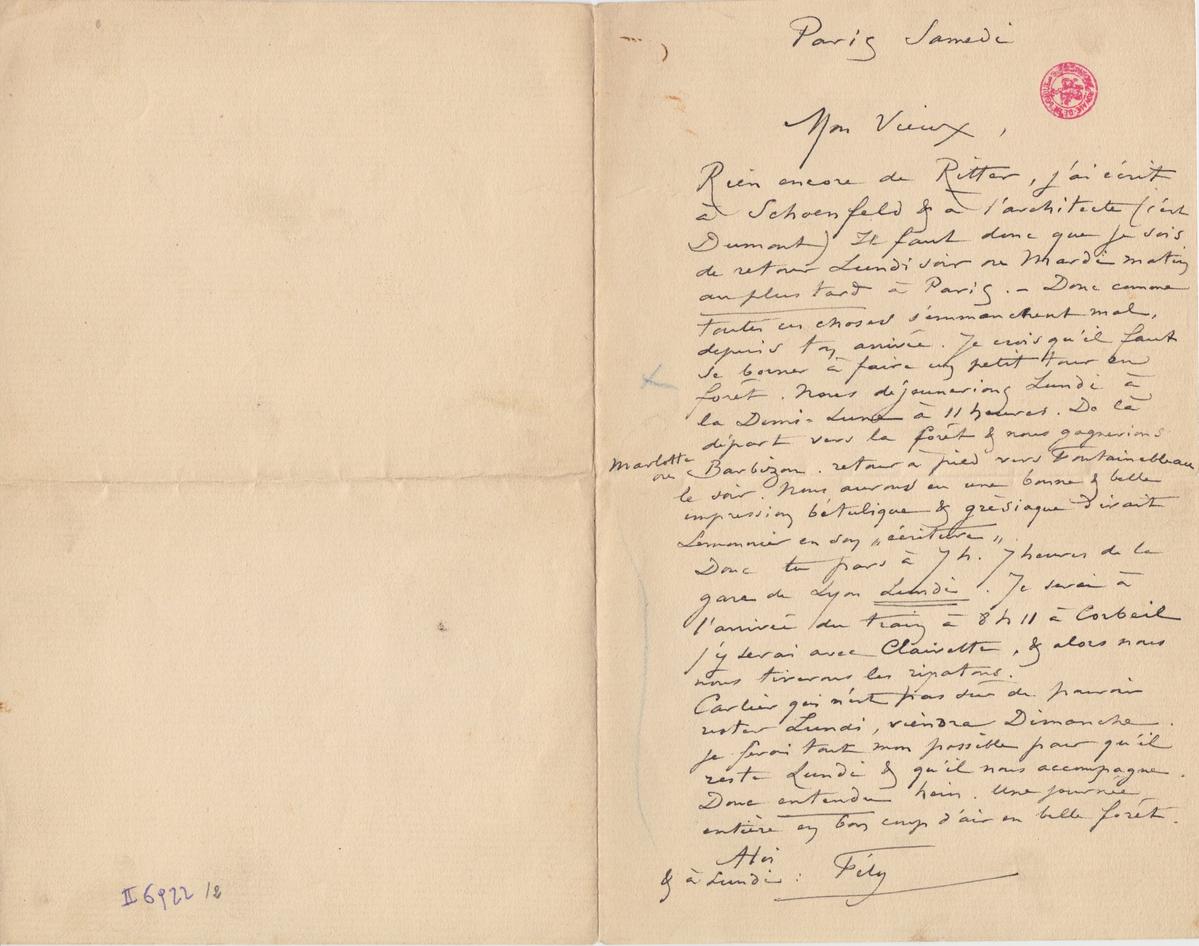 Paris Samedi
Mon Vieux,
Rien encore de Ritter, j'ai écrit
à Schoenfeld & à l'architecte (c'est
Dumont) Il faut donc que je sois
de retour Lundi soir ou Mardi matin
au plus tard à Paris. – Donc comme
toutes ces choses s'emmanchent mal,
depuis ton arrivée. Je crois qu'il faut
se borner à faire un petit tour en
forêt. Nous déjeunerions Lundi à
la Demi-Lune à 11 heures. De là
départ vers la forêt & nous gagnerions
Marlotte
ou Barbizon. retour à pied vers Fontainebleau
le soir. Nous aurons eu une bonne & belle
impression bétulique & grèsiaque dirait
Lemonnier en son „écriture„.
Donc tu pars à 7 h. 7 heures de la
gare de Lyon Lundi. Je serai à
l'arrivée du train à 8 h 11 à Corbeil
j'y serai avec Clairette, & alors nous
nous tirerons les ripatons.
Carlier qui n'est pas sûr de pouvoir
rester Lundi, viendra Dimanche.
je ferai tout mon possible pour qu'il
reste Lundi & qu'il nous accompagne.
Donc entendu hein. Une journée
entière en bon coup d'air en belle forêt.
& à Lundi : Fély
II 6922 /2